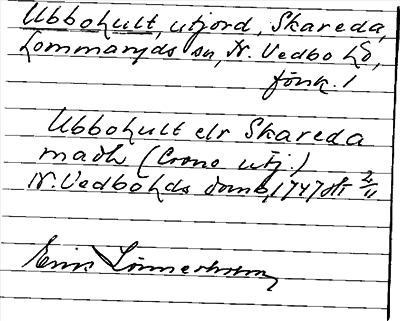 Ubbohult, utjord, Skareda,
Lommaryds sn, N. Vedbo hd,
Jönk. l
Ubbohult elr Skareda
madh (Crono utj.)
N. Vedbo hds domb, 1747 ht 2/11
Erik Linnerholm